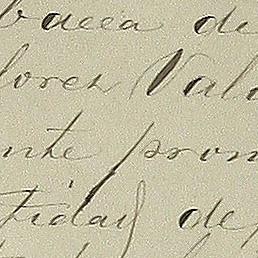 bacea de
lorez Val
nte prom
tidad de